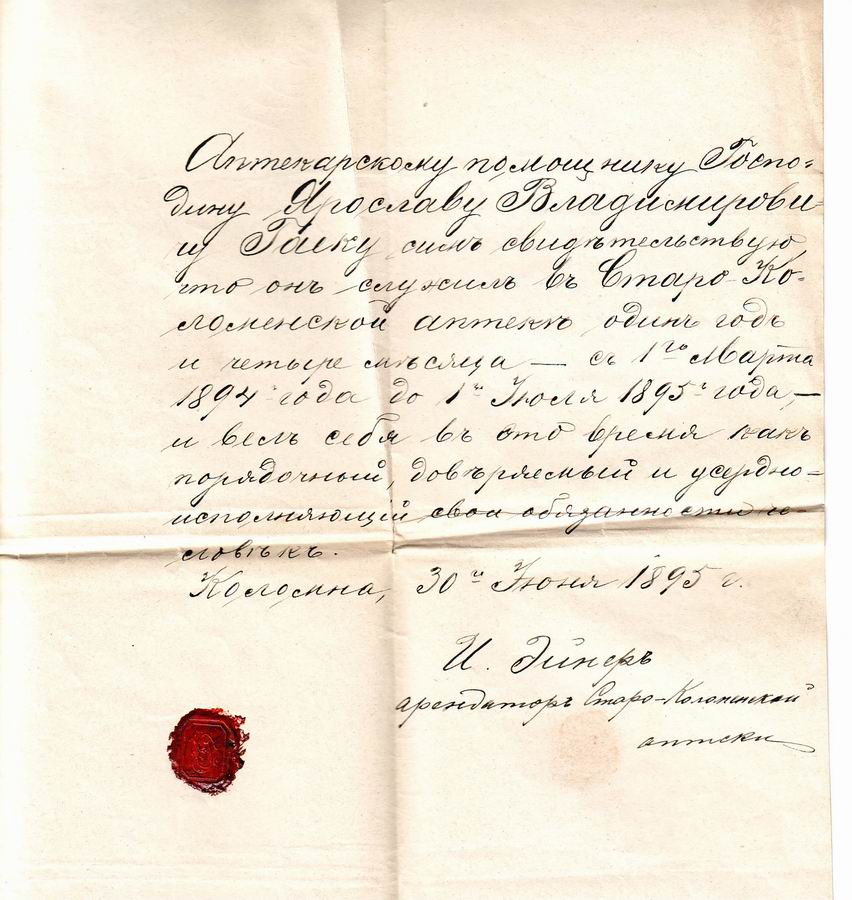 Аптекарскому помощнику Госпо-
дину Ярославу Владимирови-
чу Гаеку симъ свидѣтельствую,
что онъ служилъ въ Старо-Ко-
ломенской аптекѣ одинъ годъ
и четыре мѣсяца — съ 1го Марта
1894 года до 1го Июля 1895 г года, —
и велъ себя въ это время какъ
порядочный, довѣряемый и усердно-
исполняющий свои обязанности че-
ловѣкъ.
Коломна, 30го Июня 1895 г.
И. Эйнеръ
арендаторъ Старо-Коломенской
аптеки